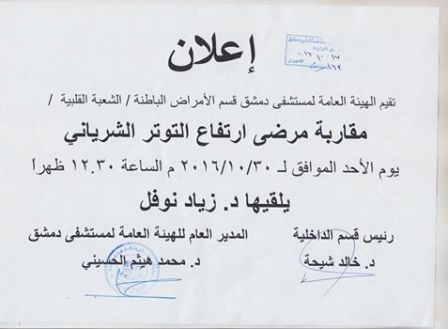 إعلان
تقيم الهيئة العامة لمستشفى دمشق قسم الأمراض الباطنة / الشعبة القلبية /
مقاربة مرضى ارتفاع التوتر الشرياني
يوم الأحد الموافق لـ ٢٠١٦/١٠/٣٠ م الساعة ١٢.٣٠ ظهراً
يلقيها د. زياد نوفل
رئيس قسم الداخلية
د. خالد شيحة
المدير العام للهيئة العامة لمستشفى دمشق
د. محمد هيثم الحسيني